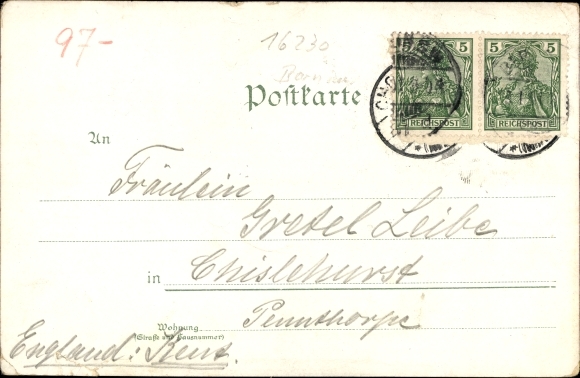 97-
16230
5 5
REICHSPOST REICHSPOST
Postkarte
An
Fräulein
Gretel Leibe
in Chislehurst
Wohnung
(Straße und Hausnummer)
Pennthorpe
England: Kent.